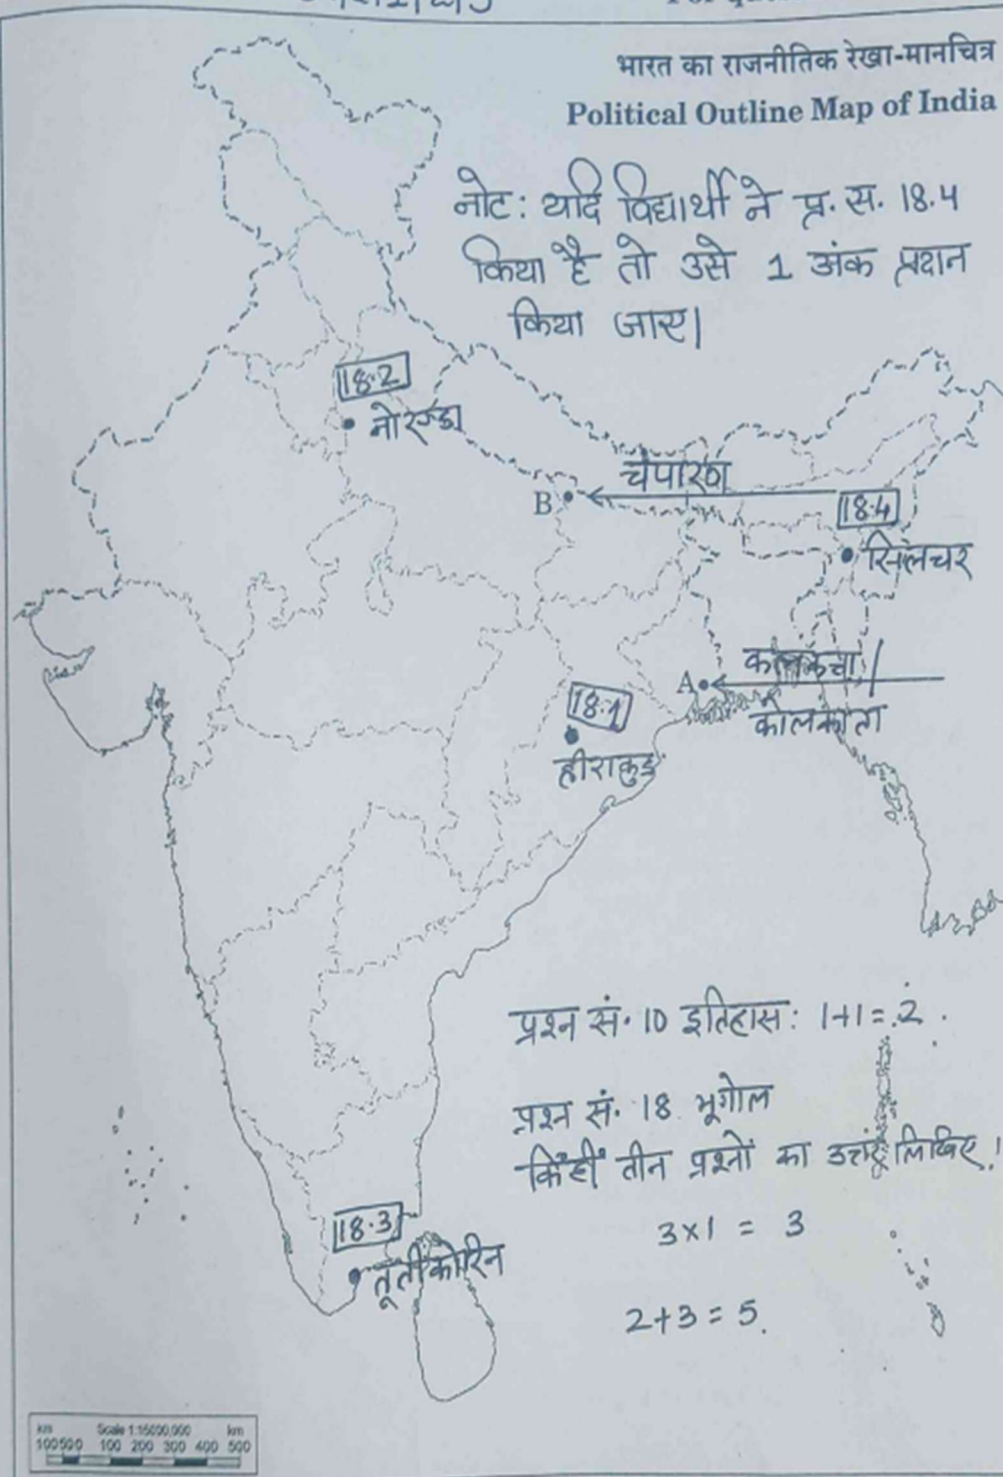 भारत का राजनीतिक रेखा-मानचित्र
Political Outline Map of India
नोट: यदि विद्यार्थी ने प्र. स. 18.4
किया है तो उसे 1 अंक प्रदान
किया जाए।
18.2
नोएडा
चंपारण
B
18.4
सिलचर
कलकत्ता /
A
कोलकाता
18.1
हीराकुड
प्रश्न सं. 10 इतिहास: 1+1=2.
प्रश्न सं. 18 भूगोल
किन्हीं तीन प्रश्नों का उत्तर लिखिए।
3×1 = 3
18.3
तूतीकोरिन
2+3=5.
km Scale 1:15000,000 km
100 50 0 100 200 300 400 500